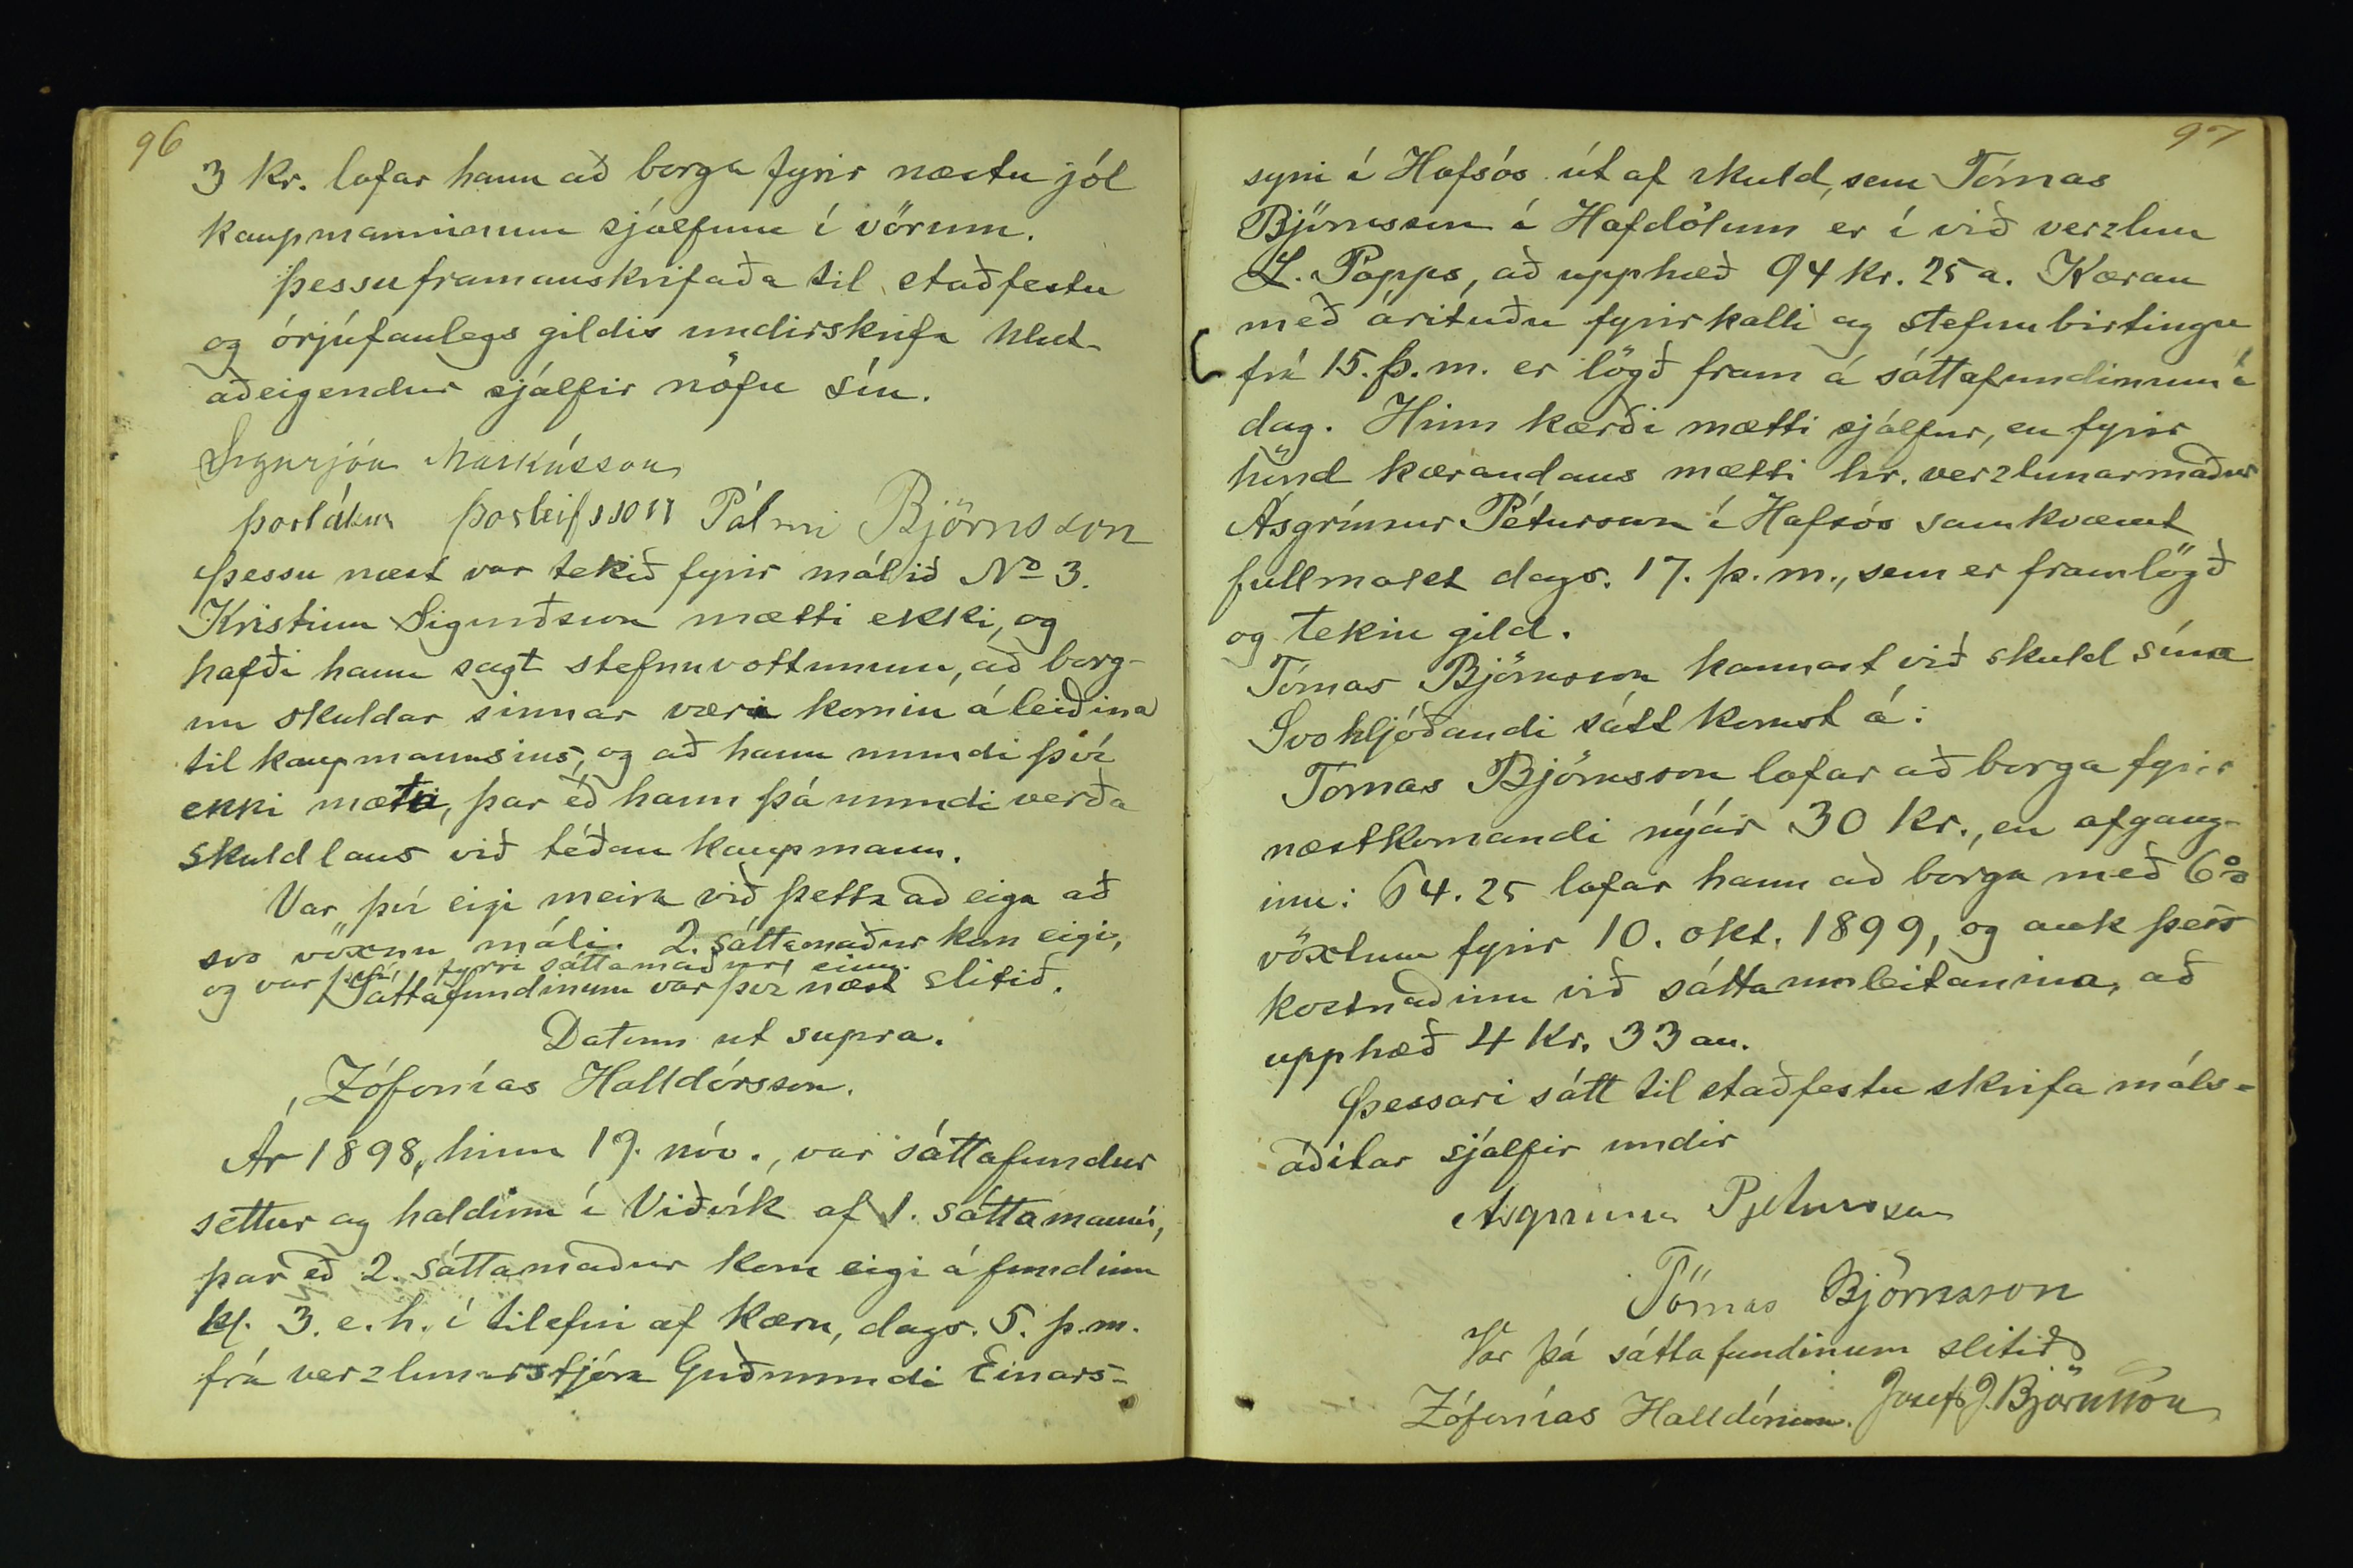 96
3 kr. lofar hann að borga fyrir næstu jól
kaupmanninum sjálfum í vörum.
Þessu framanskrifaða til staðfestu
og órjúfanlegs gildis undirskrifa hlut-
aðeigendur sjálfir nöfn sín.
Sigurjón Markússon
Þorlákur Þorleifsson Pálmi Björnsson
Þessu næst var tekið fyrir málið No 3.
Kristinn Sigurðsson mætti ekki, og
hafði hann sagt stefnuvottunum, að borg-
un skuldar sinnar væri komin á leiðina
til kaupmannsins, og að hann mundi því
ekki mæta, þar eð hann þá mundi verða
skuldlaus við téðan kaupmann.
Var því eigi meira við þetta að eiga að
svo vöxnu máli. 2. sáttamaður kom eigi,
og var því fyrri sáttamaður einn.
Sáttafundinum var því næst slitið.
Datum ut supra.
Zófonías Halldórsson.
Ár 1898, hinn 19. nóv., var sáttafundur
settur og haldinn í Viðvík af 1. sáttamanni,
þar eð 2. sáttamaður kom eigi á fundinn
kl. 3. e. h. í tilefni af kæru, dags. 5. þ. m.
frá verzlunarstjóra Guðmundi Einars-
97
syni í Hofsós út af skuld, sem Tómas
Björnsson á Hofdölum er í við verzlun
L. Popps, að upphæð 94 kr. 25 a. Kæran
með árituðu fyrirkalli og stefnubirtingu
frá 15. þ. m. er lögð fram á sáttafundinum í
dag. Hinn kærði mætti sjálfur, en fyrir
hönd kærandans mætti hr. verzlunarmaður
Ásgrímur Pétursson í Hofsós samkvæmt
fullmakt dags. 17. þ. m., sem er framlögð
og tekin gild.
Tómas Björnsson kannast við skuld sína
Svohljóðandi sátt komst á:
Tómas Björnsson lofar að borga fyrir
næstkomandi nýár 30 kr., en afgang-
inn: 64.25 lofar hann að borga með 6%
vöxtum fyrir 10. okt. 1899, og auk þess
kostnaðinn við sáttaumleitanina, að
upphæð 4 kr. 33 au.
Þessari sátt til staðfestu skrifa máls-
aðilar sjálfir undir
Asgrimur Pjetursson
Tómas Björnsson
Var þá sáttafundinum slitið
Zófonías Halldórsson. Josef J. Björnsson